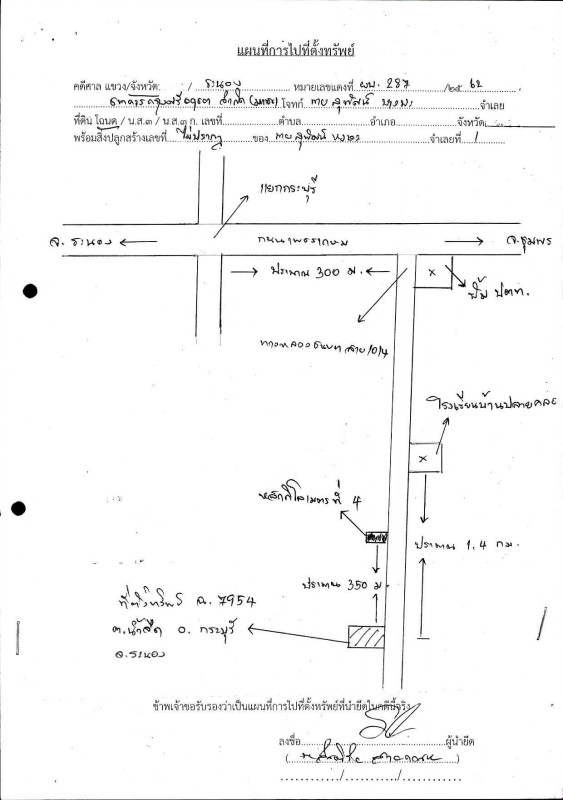 แผนที่การไปที่ตั้งทรัพย์
คดีศาล แขวง/จังหวัด: / ระนอง หมายเลขแดงที่ ผบ. 287 /๒๕ 62
ธนาคารกรุงศรีอยุธยา จำกัด (มหาชน) โจทก์ นาย สุพัฒน์ จำเลย
ที่ดิน โฉนด / น.ส.๓ / น.ส.๓ ก. เลขที่ ตำบล อำเภอ จังหวัด
พร้อมสิ่งปลูกสร้างเลขที่ ไม่ปรากฏ ของ นาย สุพัฒน์ จำเลยที่ 1
แยกกระบุรี
จ. ระนอง
ถนนเพชรเกษม
จ.ชุมพร
ประมาณ 300 ม.
x
ปั๊ม ปตท.
ทางหลวงชนบท สาย
โรงเรียนบ้านปลายคลอง
x
หลักกิโลเมตรที่ 4
ประมาณ 1.4 กม.
ประมาณ 350 ม.
ที่ตั้งทรัพย์ ฉ. 7954
ต.น้ำจืด อ. กระบุรี
จ.ระนอง
ข้าพเจ้าขอรับรองว่าเป็นแผนที่การไปที่ตั้งทรัพย์ที่นำยึดในคดีนี้จริง
ลงชื่อ ผู้นำยึด